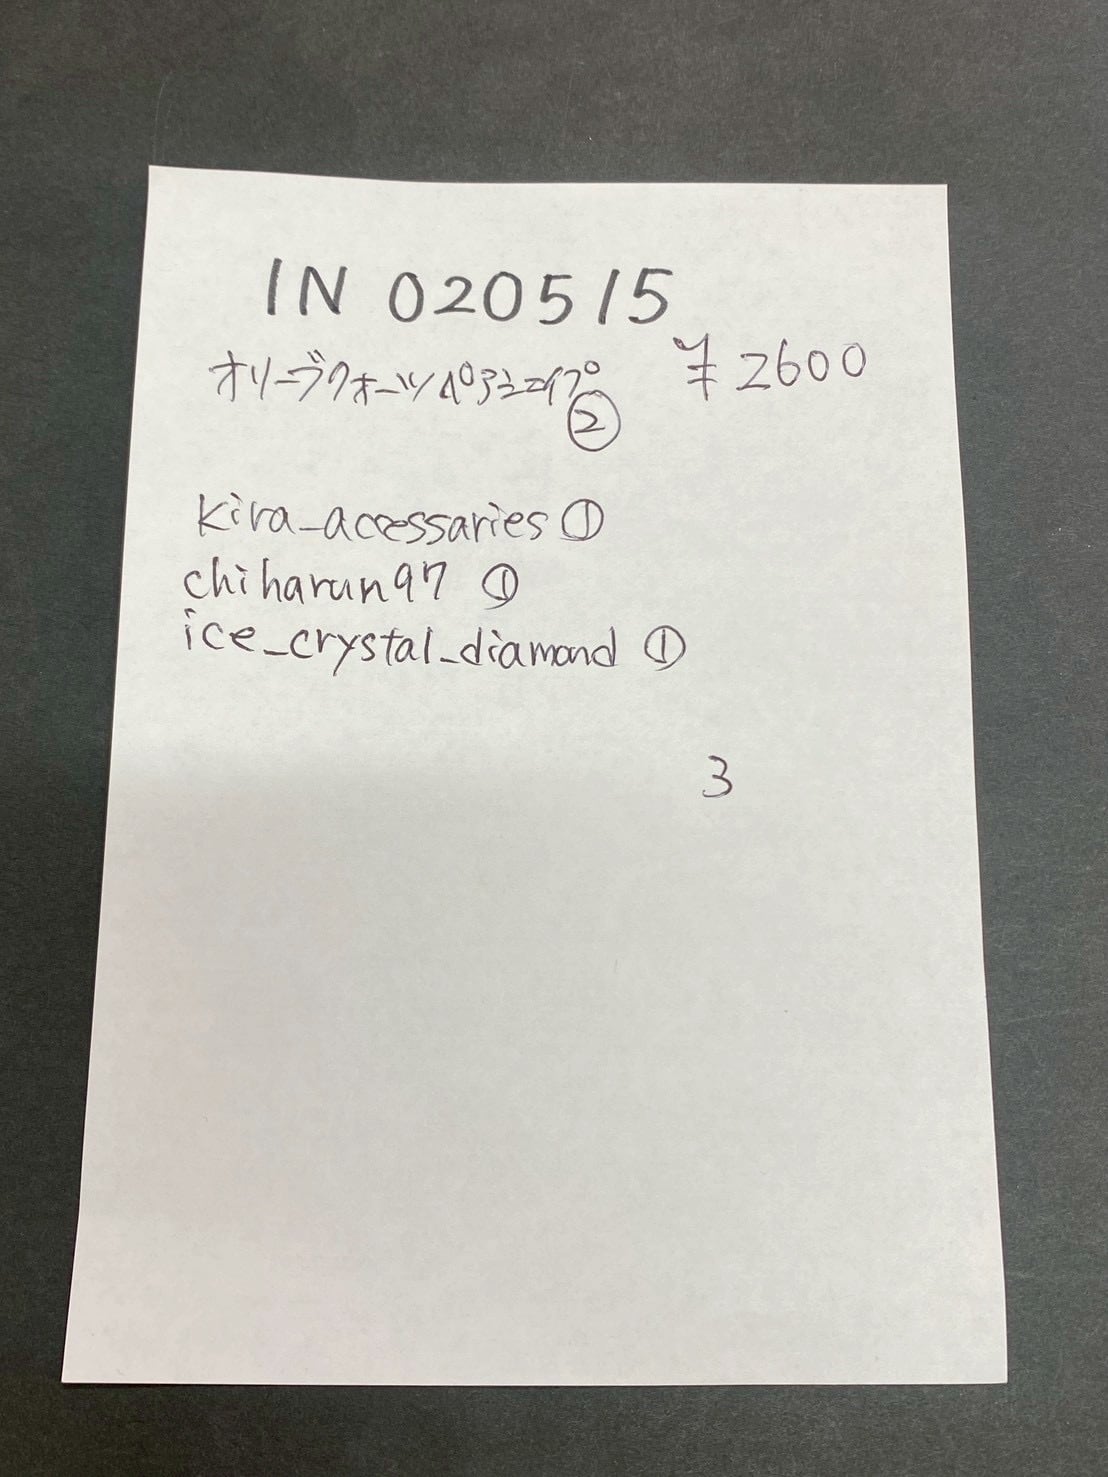 IN 020515
オリーブクォーツペアシェイプ ¥2600
②
kira_accessaries ①
chiharun97 ①
ice_crystal_diamond ①
3